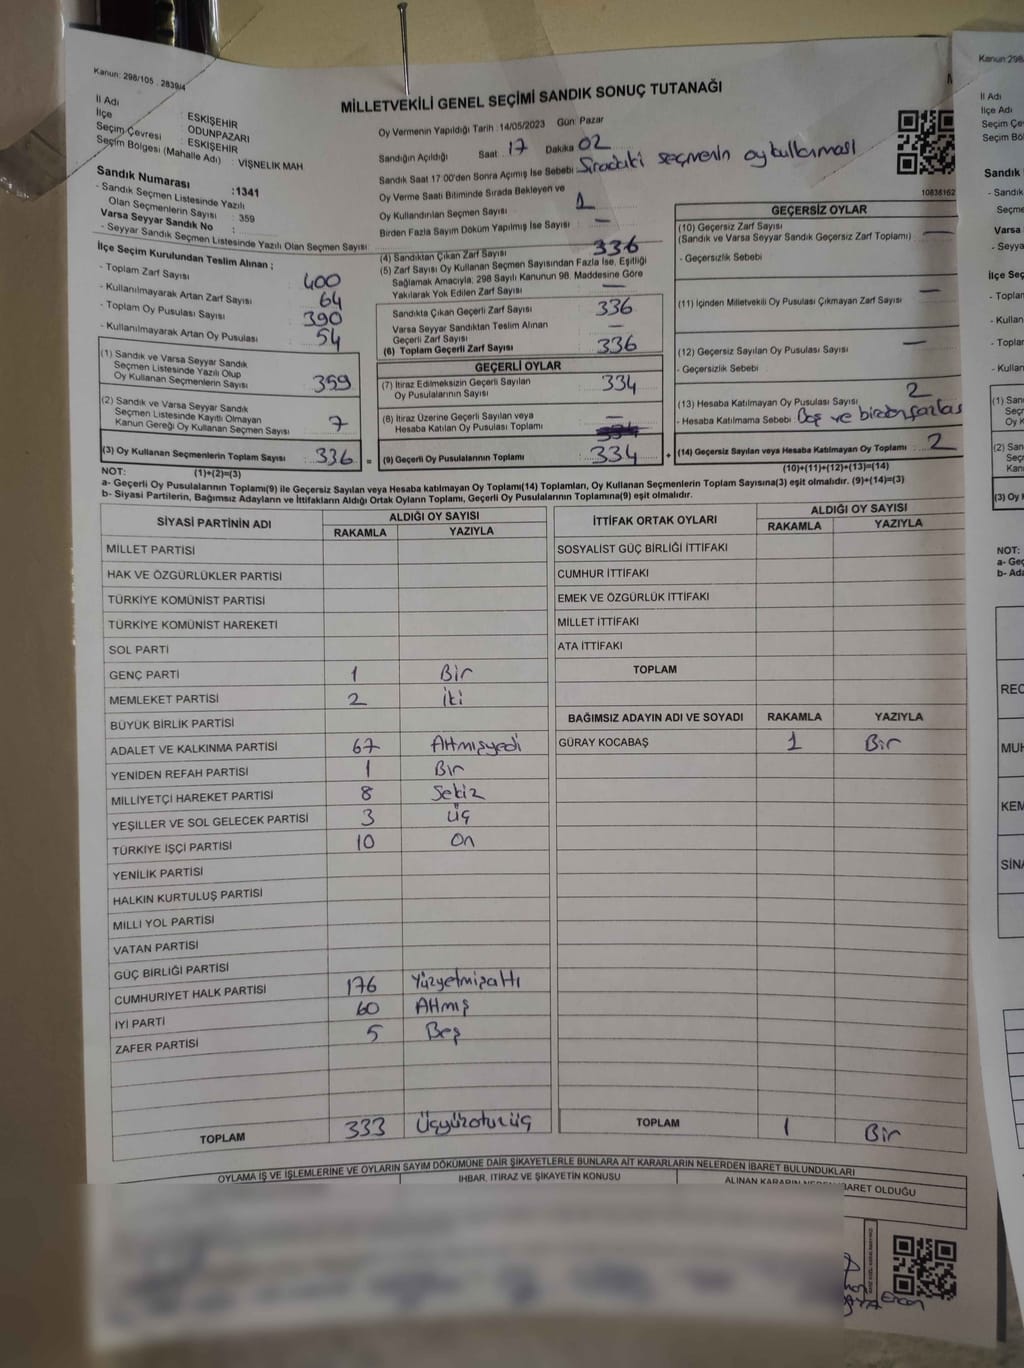 Kanun: 298/105 . 2839/4
MİLLETVEKİLİ GENEL SEÇİMİ SANDIK SONUÇ TUTANAĞI
İl Adı : ESKİŞEHİR
İlçe : ODUNPAZARI
Seçim Çevresi : ESKİŞEHİR
Seçim Bölgesi (Mahalle Adı) : VİŞNELİK MAH
Sandık Numarası :1341
- Sandık Seçmen Listesinde Yazılı
Olan Seçmenlerin Sayısı : 359
Varsa Seyyar Sandık No :
- Seyyar Sandık Seçmen Listesinde Yazılı Olan Seçmen Sayısı:
Oy Vermenin Yapıldığı Tarih :14/05/2023 Gün: Pazar
Sandığın Açıldığı Saat : 17 Dakika : 02
Sandık Saat 17:00'den Sonra Açımış İse Sebebi: Sıradaki seçmenin oy kullanması
Oy Verme Saati Bitiminde Sırada Bekleyen ve
Oy Kullandırılan Seçmen Sayısı : 1
Birden Fazla Sayım Döküm Yapılmış İse Sayısı : —
10836162
İlçe Seçim Kurulundan Teslim Alınan ;
- Toplam Zarf Sayısı : 400
- Kullanılmayarak Artan Zarf Sayısı : 64
- Toplam Oy Pusulası Sayısı : 390
- Kullanılmayarak Artan Oy Pusulası : 54
(1) Sandık ve Varsa Seyyar Sandık
Seçmen Listesinde Yazılı Olup
Oy Kullanan Seçmenlerin Sayısı : 359
(2) Sandık ve Varsa Seyyar Sandık
Seçmen Listesinde Kayıtlı Olmayan
Kanun Gereği Oy Kullanan Seçmen Sayısı : 7
(3) Oy Kullanan Seçmenlerin Toplam Sayısı : 336
(1)+(2)=(3)
(4) Sandıktan Çıkan Zarf Sayısı : 336
(5) Zarf Sayısı Oy Kullanan Seçmen Sayısından Fazla İse, Eşitliği
Sağlamak Amacıyla; 298 Sayılı Kanunun 98. Maddesine Göre
Yakılarak Yok Edilen Zarf Sayısı : —
Sandıkta Çıkan Geçerli Zarf Sayısı : 336
Varsa Seyyar Sandıktan Teslim Alınan
Geçerli Zarf Sayısı : —
(6) Toplam Geçerli Zarf Sayısı : 336
GEÇERLİ OYLAR
(7) İtiraz Edilmeksizin Geçerli Sayılan
Oy Pusulalarının Sayısı : 334
(8) İtiraz Üzerine Geçerli Sayılan veya
Hesaba Katılan Oy Pusulası Toplamı : —
= (9) Geçerli Oy Pusulalarının Toplamı : 334
GEÇERSİZ OYLAR
(10) Geçersiz Zarf Sayısı
(Sandık ve Varsa Seyyar Sandık Geçersiz Zarf Toplamı) : —
- Geçersizlik Sebebi :
(11) İçinden Milletvekili Oy Pusulası Çıkmayan Zarf Sayısı : —
(12) Geçersiz Sayılan Oy Pusulası Sayısı : —
- Geçersizlik Sebebi :
(13) Hesaba Katılmayan Oy Pusulası Sayısı : 2
- Hesaba Katılmama Sebebi : Boş ve birden fazla
+ (14) Geçersiz Sayılan veya Hesaba Katılmayan Oy Toplamı : 2
(10)+(11)+(12)+(13)=(14)
NOT:
a- Geçerli Oy Pusulalarının Toplamı(9) ile Geçersiz Sayılan veya Hesaba katılmayan Oy Toplamı(14) Toplamları, Oy Kullanan Seçmenlerin Toplam Sayısına(3) eşit olmalıdır. (9)+(14)=(3)
b- Siyasi Partilerin, Bağımsız Adayların ve İttifakların Aldığı Ortak Oyların Toplamı, Geçerli Oy Pusulalarının Toplamına(9) eşit olmalıdır.
SİYASİ PARTİNİN ADI ALDIĞI OY SAYISI
RAKAMLA YAZIYLA
MİLLET PARTİSİ
HAK VE ÖZGÜRLÜKLER PARTİSİ
TÜRKİYE KOMÜNİST PARTİSİ
TÜRKİYE KOMÜNİST HAREKETİ
SOL PARTİ
GENÇ PARTİ 1 Bir
MEMLEKET PARTİSİ 2 İki
BÜYÜK BİRLİK PARTİSİ
ADALET VE KALKINMA PARTİSİ 67 Altmışyedi
YENİDEN REFAH PARTİSİ 1 Bir
MİLLİYETÇİ HAREKET PARTİSİ 8 Sekiz
YEŞİLLER VE SOL GELECEK PARTİSİ 3 Üç
TÜRKİYE İŞÇİ PARTİSİ 10 On
YENİLİK PARTİSİ
HALKIN KURTULUŞ PARTİSİ
MİLLİ YOL PARTİSİ
VATAN PARTİSİ
GÜÇ BİRLİĞİ PARTİSİ
CUMHURİYET HALK PARTİSİ 176 Yüzyetmişaltı
İYİ PARTİ 60 Altmış
ZAFER PARTİSİ 5 Beş
TOPLAM 333 Üçyüzotuzüç
İTTİFAK ORTAK OYLARI ALDIĞI OY SAYISI
RAKAMLA YAZIYLA
SOSYALİST GÜÇ BİRLİĞİ İTTİFAKI
CUMHUR İTTİFAKI
EMEK VE ÖZGÜRLÜK İTTİFAKI
MİLLET İTTİFAKI
ATA İTTİFAKI
TOPLAM
BAĞIMSIZ ADAYIN ADI VE SOYADI RAKAMLA YAZIYLA
GÜRAY KOCABAŞ 1 Bir
TOPLAM 1 Bir
OYLAMA İŞ VE İŞLEMLERİNE VE OYLARIN SAYIM DÖKÜMÜNE DAİR ŞİKAYETLERLE BUNLARA AİT KARARLARIN NELERDEN İBARET BULUNDUKLARI
İHBAR, İTİRAZ VE ŞİKAYETİN KONUSU
ALINAN KARARIN NEDEN İBARET OLDUĞU
Kanun: 298
İl Adı
İlçe Adı
Seçim Çe
Seçim Bö
Sandık
- Sandık
Seçme
Varsa
- Seyya
İlçe Seç
- Toplar
- Kullan
- Toplar
- Kullan
(1) San
Seç
Oy K
(2) San
Seç
Kan
(3) Oy K
NOT:
a- Geç
b- Ada
REC
MUH
KEM
SİNA